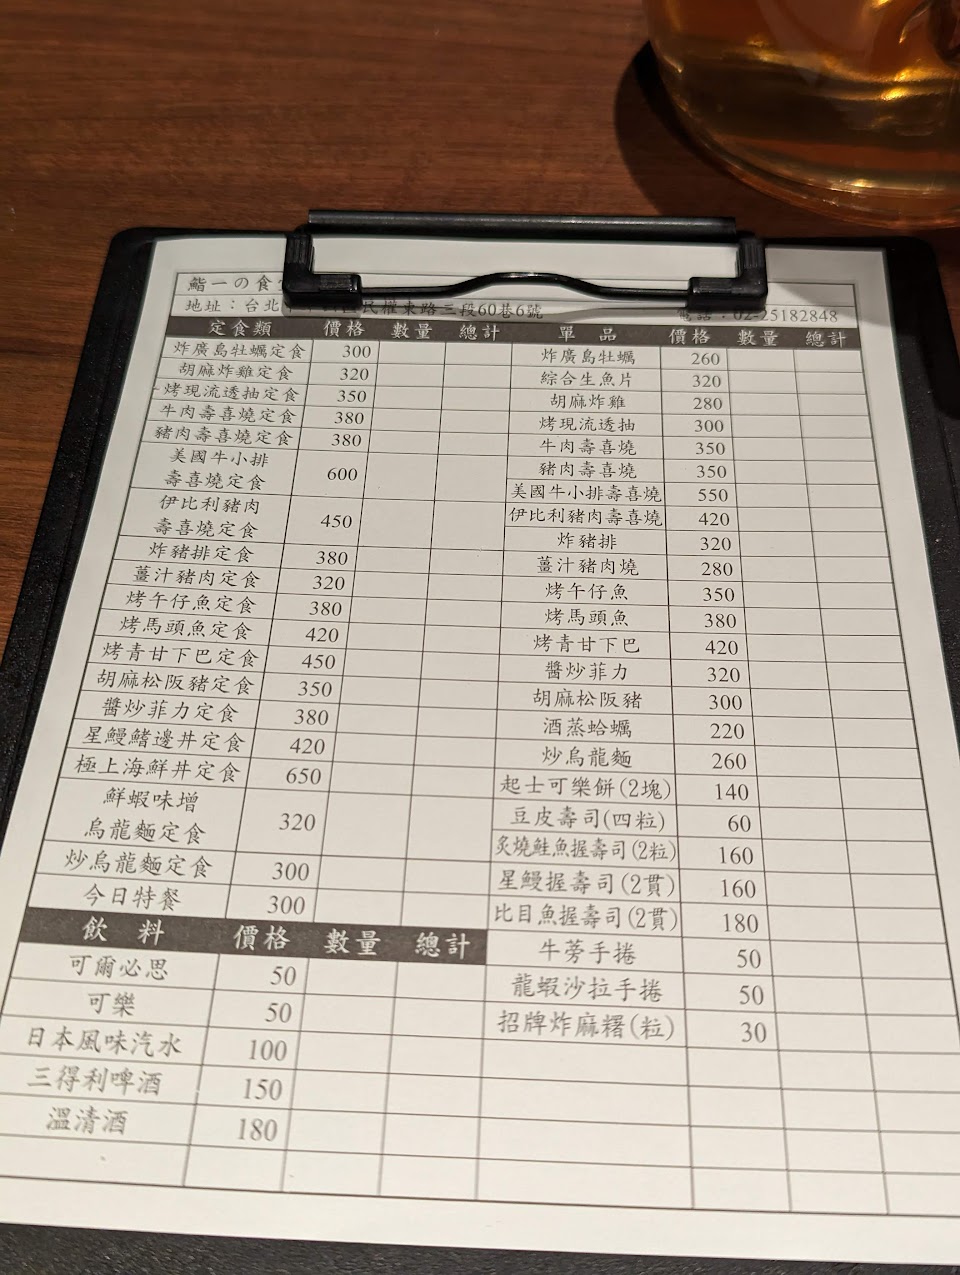 鮨一の食
地址：台北 民權東路三段60巷6號 電話：02-25182848
定食類 價格 數量 總計
炸廣島牡蠣定食 300
胡麻炸雞定食 320
烤現流透抽定食 350
牛肉壽喜燒定食 380
豬肉壽喜燒定食 380
美國牛小排
壽喜燒定食 600
伊比利豬肉
壽喜燒定食 450
炸豬排定食 380
薑汁豬肉定食 320
烤午仔魚定食 380
烤馬頭魚定食 420
烤青甘下巴定食 450
胡麻松阪豬定食 350
醬炒菲力定食 380
星鰻鰭邊丼定食 420
極上海鮮丼定食 650
鮮蝦味增
烏龍麵定食 320
炒烏龍麵定食 300
今日特餐 300
飲料 價格 數量 總計
可爾必思 50
可樂 50
日本風味汽水 100
三得利啤酒 150
溫清酒 180
單品 價格 數量 總計
炸廣島牡蠣 260
綜合生魚片 320
胡麻炸雞 280
烤現流透抽 300
牛肉壽喜燒 350
豬肉壽喜燒 350
美國牛小排壽喜燒 550
伊比利豬肉壽喜燒 420
炸豬排 320
薑汁豬肉燒 280
烤午仔魚 350
烤馬頭魚 380
烤青甘下巴 420
醬炒菲力 320
胡麻松阪豬 300
酒蒸蛤蠣 220
炒烏龍麵 260
起士可樂餅(2塊) 140
豆皮壽司(四粒) 60
炙燒鮭魚握壽司(2粒) 160
星鰻握壽司(2貫) 160
比目魚握壽司(2貫) 180
牛蒡手捲 50
龍蝦沙拉手捲 50
招牌炸麻糬(粒) 30